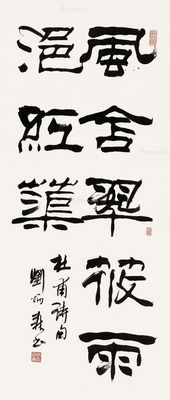 風含翠筱雨
浥紅蕖
杜甫詩句
劉炳森書